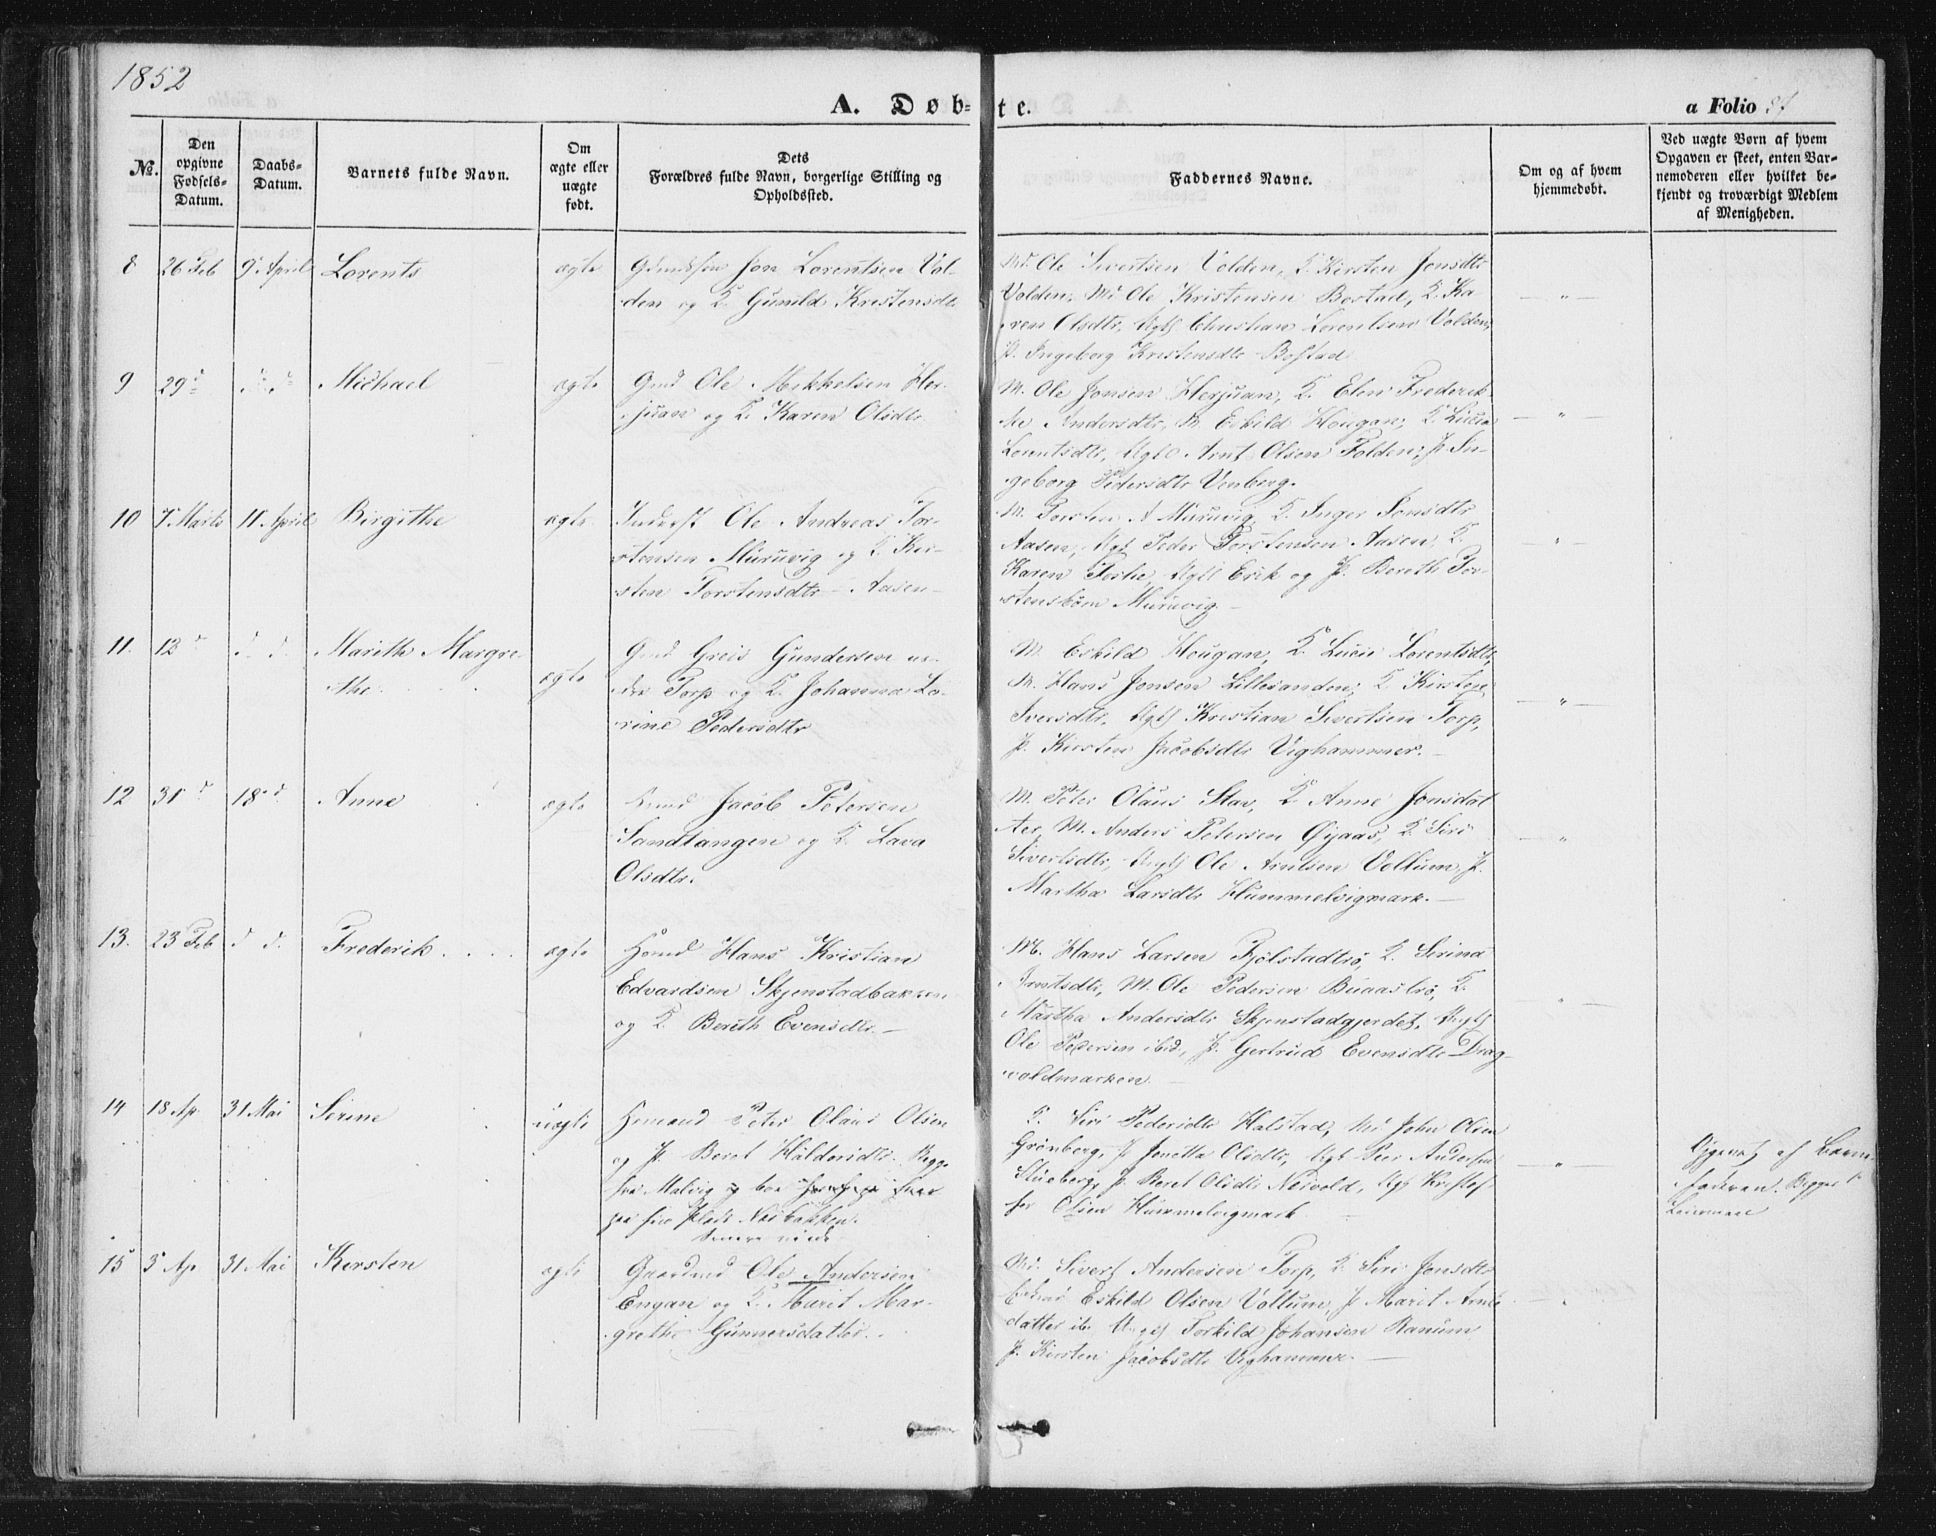 1852
A. Døb-
te.
a Folio
No.
Den
opgivne
Fødsels-
Datum.
Daabs-
Datum.
Barnets fulde Navn.
Om
ægte eller
uægte
født.
Dets
Forældres fulde Navn, borgerlige Stilling og
Opholdssted.
Faddernes Navne.
Om og af hvem
hjemmedøbt.
Ved uægte Børn af hvem
Opgaven er skeet, enten Bar-
nemoderen eller hvilket be-
kjendt og troværdigt Medlem
af Menigheden.
8 26 Feb 9 April Lorents ægte
Jon Lorentsen Vol-
den og K. Gunild Kristensdtr
M. Ole Sivertsen Volden, K. Kirsten Jonsdtr
Volden, M. Ole Kristensen Bostad, K. Ka-
ren Olsdtr, Ungk Christian Lorentsen Volden,
P. Ingeborg Kristensdtr Bostad
— " —
9 29 d Michael ægte
Gmd Ole Mikkelsen Her-
juan og K. Karen Olsdtr
M. Ole Jonsen Herjuan, K. Elen Frederik-
ke Andersdtr, M. Eskild Hougan, K. Lucie
Lorentsdtr, Ungk Arnt Olsen Folden, P. In-
geborg Pedersdtr Venberg.
— " —
10 7 Marts 11 April Birgithe ægte
Inderst Ole Andreas Tor-
stensen Muruvig og K. Kir-
sten Torstensdtr Aasen
M. Torsten A Muruvig, K. Inger Jonsdtr
Aasen, Ungk Peder Torstensen Aasen, K.
Karen Ungk Erik og P. Bereth Tor-
stensbörn Muruvig —
— " —
11. 12 d d. d. Marith Margre-
the ægte
Gmd Greis Gundersen
Torp og K. Johanna Lo-
rine Pedersdtr
M. Eskild Hougan, K. Lucie Lorentsdtr,
M. Hans Jonsen Lillesanden, K. Kirsten
Iversdtr, Ungk Kristian Sivertsen Torp,
P. Kirsten Jacobsdtr Vighammer. —
— " —
12 31 d 18 d. Anne ægte
Jacob Petersen
Sandtangen og K. Lava
Olsdtr.
M. Peter Olaus Stav, K. Anne Jonsdat
ter, M. Anders Petersen Øyaas, K. Siri
Sivertsdtr, Ungk Ole Arntsen Vollum, P.
Martha Larsdtr Hummelvigmark. —
— " —
13. 23 Feb d d. Frederik . . . . ægte
Hmd Hans Kristian
Edvardsen Skjenstadbakken
og K. Bereth Evensdtr. —
M. Hans Larsen Fjölstadtrö, K. Sirina
Arntsdtr, M. Ole Pedersen Buaaströ, K.
Martha Andersdtr Skjenstadgjerdet, Ungk
Ole Pedersen ibid, P. Gertrud Evensdtr Drag-
voldmarken —
"
14 18 Ap. 31 Mai Serine uægte
Hmand Peter Olaus Olsen
og P. Beret Haldorsdtr. Begge
fra Malvig og boe
paa sin Plads Næsbakken.
K. Siri Pedersdtr Halstad, M. John Olsen
Grönberg, P. Jonetta Olsdtr, Ungk Peer Andersen
Stueberg, P. Beret Olsdtr Neivold, Ungk Kristof-
fer Olsen Hummelvigmark —
— " —
Opgivet af Barne-
faderen. Begges 1ste
Leiermaal
15 5 Ap 31 Mai Kersten ægte
Gaardmd Ole Andersen
Engan og K. Marit Mar-
grethe Gunnersdatter.
M. Sivert Andersen Torp, K. Siri Jonsdtr
Eskild Olsen Voltum, P. Marit Arnts-
datter ib. Ungk Torkild Johansen Ranum
P. Kirsten Jacobsdtr Vighammer —